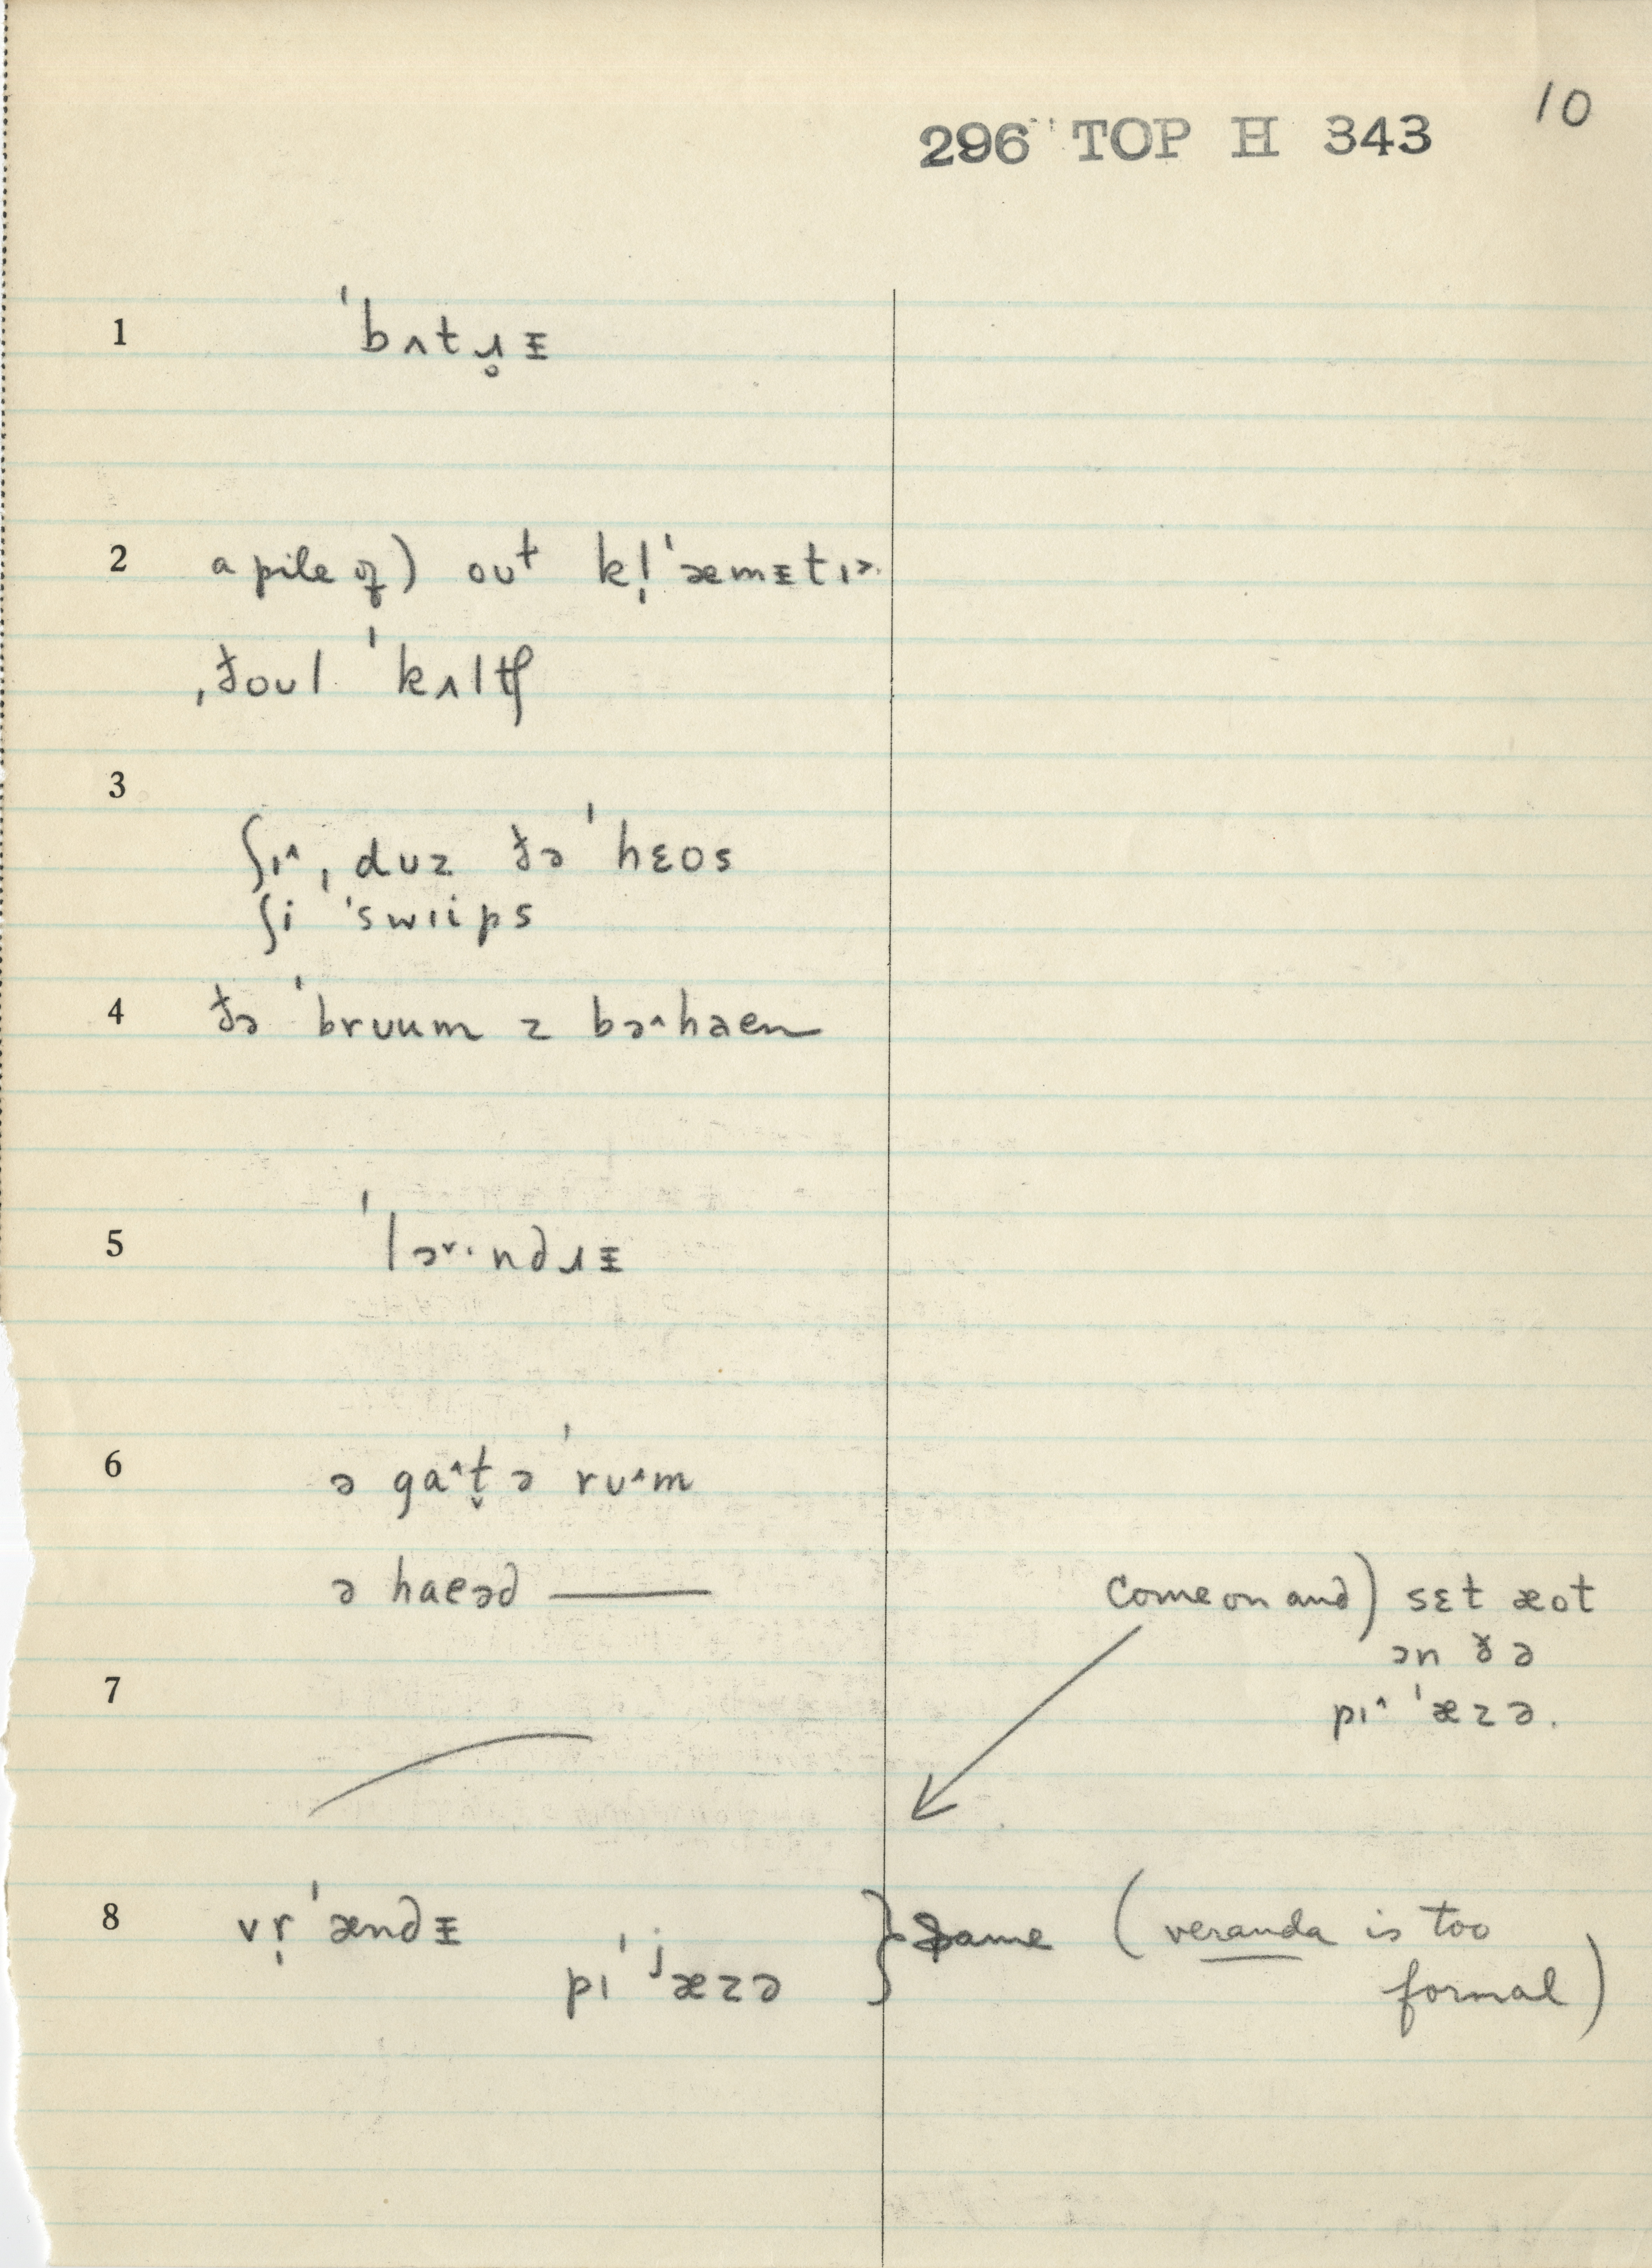 10
296 TOP H 343
1 ˈbʌtɹ̥ᵻ
2 a pile of) out kl̩ˈæmᵻtɪ˃
ˌðoul ˈkʌltʃ
3
ʃɪ^ ˌduz ðə ˈhɛos
ʃi ˈswɪips
4 ðə ˈbrʊum z bə^haen
5 ˈlɚ·ndɹᵻ
6 ə ga^t̬ə ˈrʊ^m
ə haeəd ———
Come on and) sɛt æot
ən ðə
7 pɪ^ ˈæzə.
8 vr̩ˈændᵻ pɪˈʲæzə } Same (veranda is too
formal)